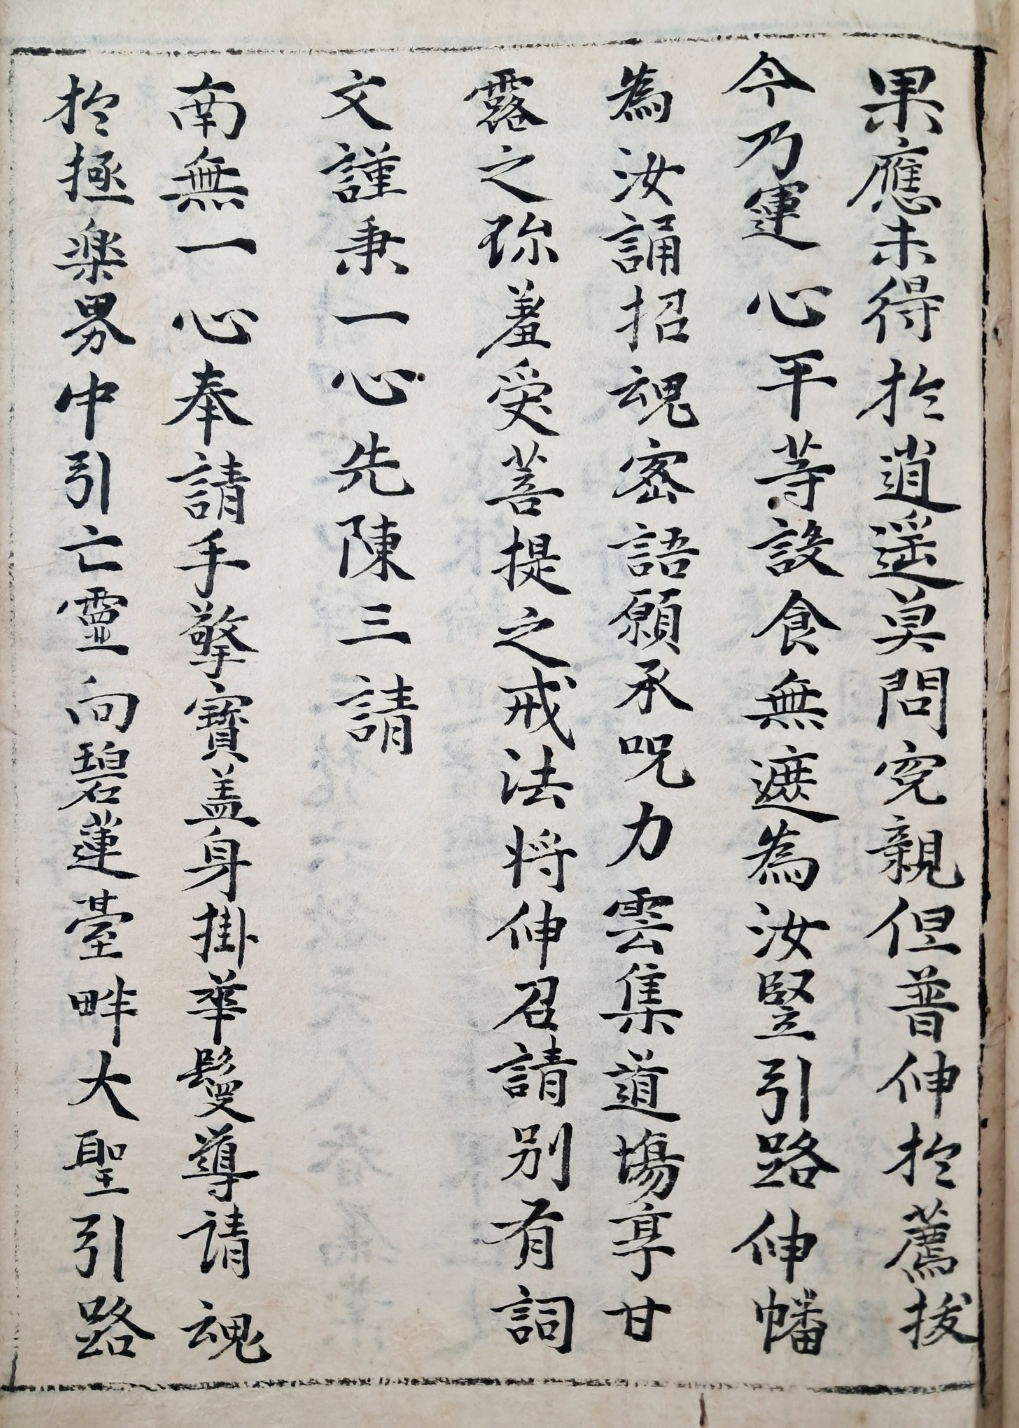 果應未得扵逍遥莫問寃親但普伸扵薦拔
今乃運心平等設食無遮為汝竪引路伸幡
為汝誦招魂密語願承呪力雲集道塲享甘
露之珎羞受菩提之戒法将伸召請别有詞
文謹秉一心先陳三請
南無一心奉請手擎寳盖身掛華鬘導請魂
扵極楽界中引亡靈向碧蓮臺畔大聖引路